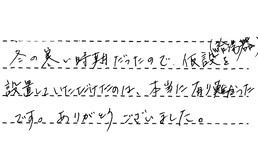 冬の寒い時期だったので、仮設を
設置していただけたのは、本当に有り難かった
です。ありがとうございました。